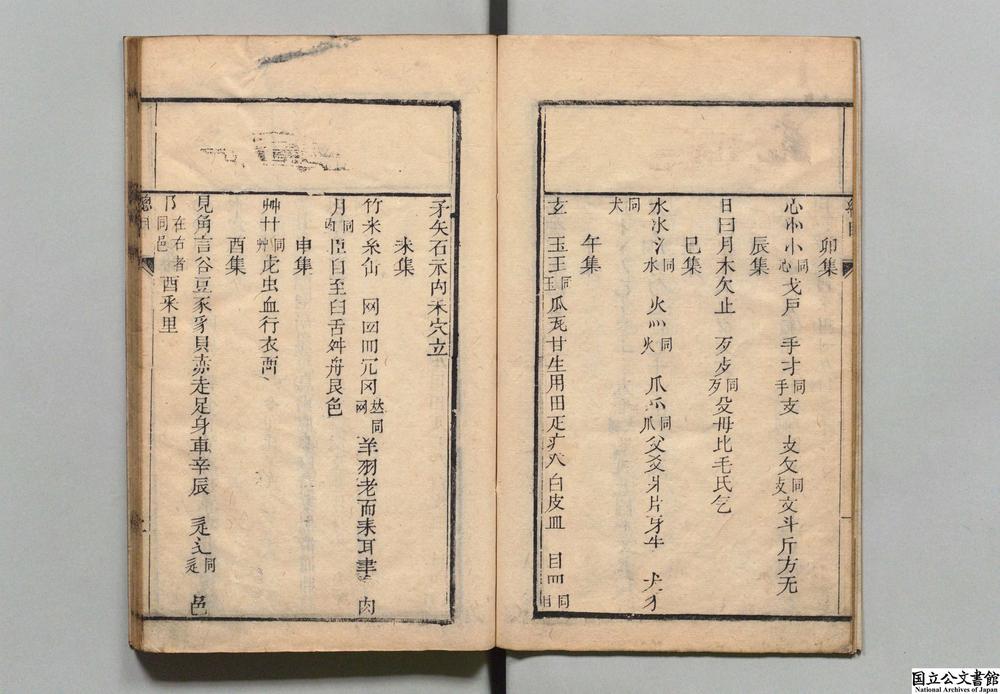 卯集
心忄㣺同心戈戶 手扌同手支 攴攵同攴文斗斤方无
辰集
日曰月木欠止 歹歺同歹殳毋比毛氏气
巳集
水氵同水 火灬同火 爪爫同爪父爻爿片牙牛 犬犭
同犬
午集
玄 玉王同玉瓜瓦甘生用田疋疒癶白皮皿 目罒同目
矛矢石示禸禾穴立
未集
竹米糸缶 网罒同网羊羽老而耒耳聿 肉
月同肉臣自至臼舌舛舟艮色
申集
艸艹同艸虍虫血行衣襾
酉集
見角言谷豆豕豸貝赤走足身車辛辰 辵辶同辵 邑
阝在右者同邑酉釆里
総目
国立公文書館
National Archives of Japan